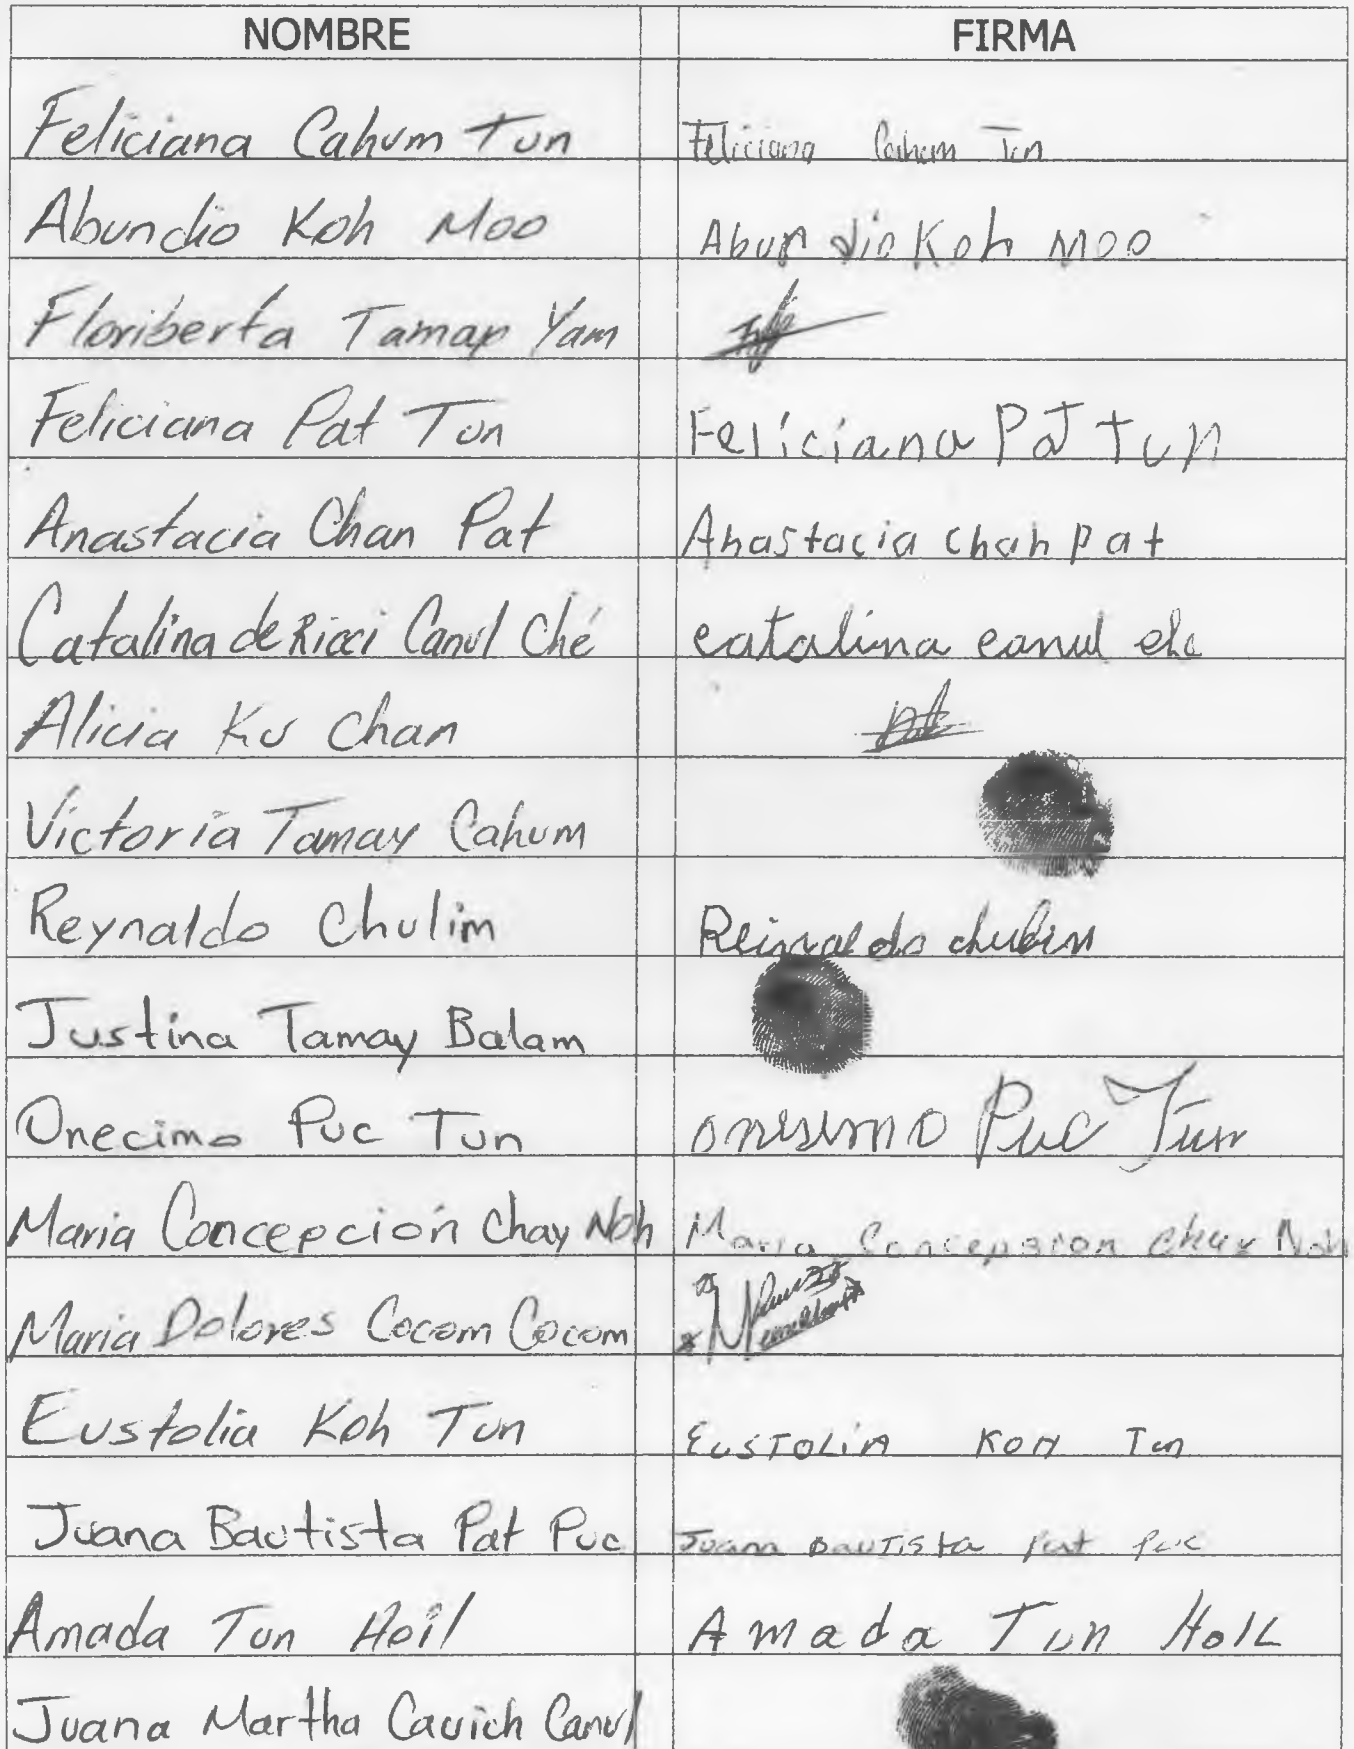 NOMBRE FIRMA
Feliciana Cahum Tun Feliciana Cahum Tun
Abundio Koh Moo Abundio Koh Moo
Floriberta Tamay Yam
Feliciana Pat Tun Feliciana Pat Tun
Anastacia Chan Pat Anastacia chan pat
Catalina de Ricci Canul Ché catalina canul che
Alicia Ku Chan
Victoria Tamay Cahum
Reynaldo Chulim Reinaldo chulim
Justina Tamay Balam
Onecimo Puc Tun onesimo Puc Tun
Maria Concepción Chay Noh Maria Concepcion Chay Noh
Maria Dolores Cocom Cocom
Eustolia Koh Tun EUSTOLIA KOH Tun
Juana Bautista Pat Puc Juana Bautista Pat Puc
Amada Tun Hoil Amada Tun HoiL
Juana Martha Cauich Canul